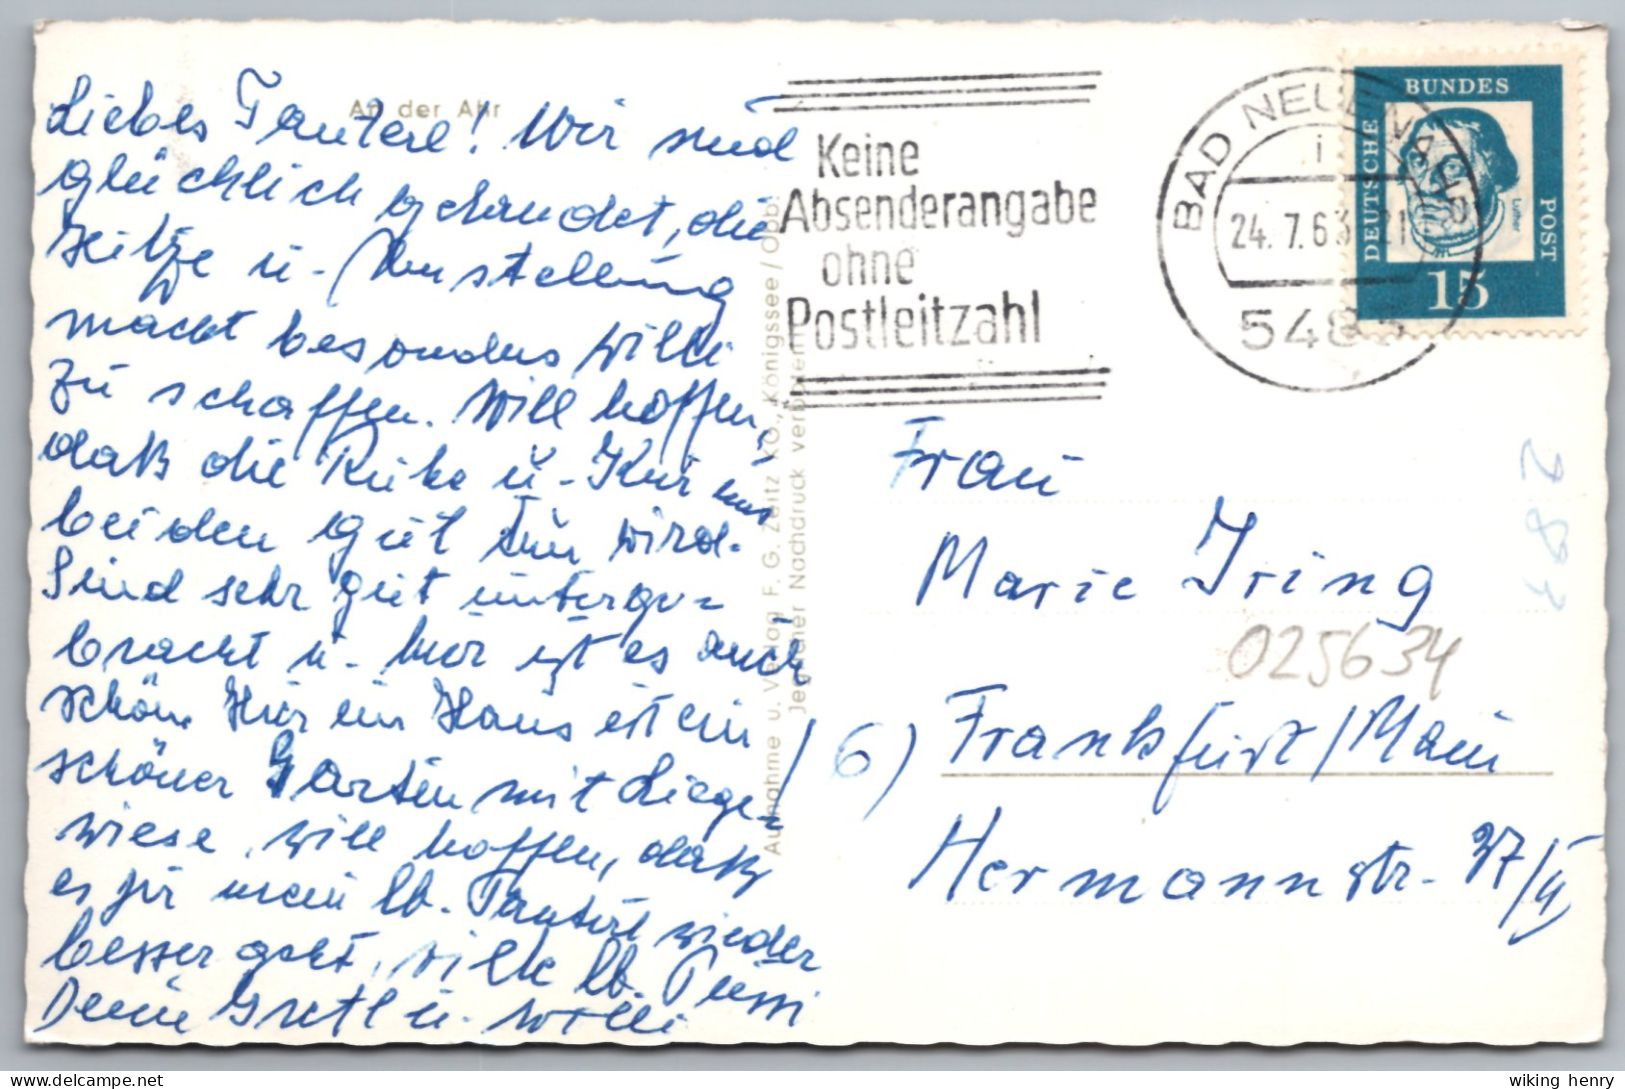 An der Ahr
Liebes Tanterl! Wir sind
glücklich gelandet, die
Hitze u. Umstellung
macht besonders Willi
zu schaffen. Will hoffen,
daß die Ruhe u. Kur uns
beiden gut tun wird.
Sind sehr gut unterge-
bracht u. hier ist es auch
schön. Hier im Haus ist ein
schöner Garten mit Liege-
wiese, will hoffen, daß
es Dir mein lb. Tanterl wieder
besser geht, viele lb. Bussi
Deine Gretl u. Willi
Aufnahme u. Verlag F. G. Zeitz KG., Königssee/Obb.
Jeglicher Nachdruck verboten
Keine
Absenderangabe
ohne
Postleitzahl
BAD NEUENAHR
i
24.7.63 21
548
DEUTSCHE
BUNDES
POST
Luther
15
Frau
Marie Iring
025634
6) Frankfurt/Main
Hermannstr. 37/II
287
wiking henry